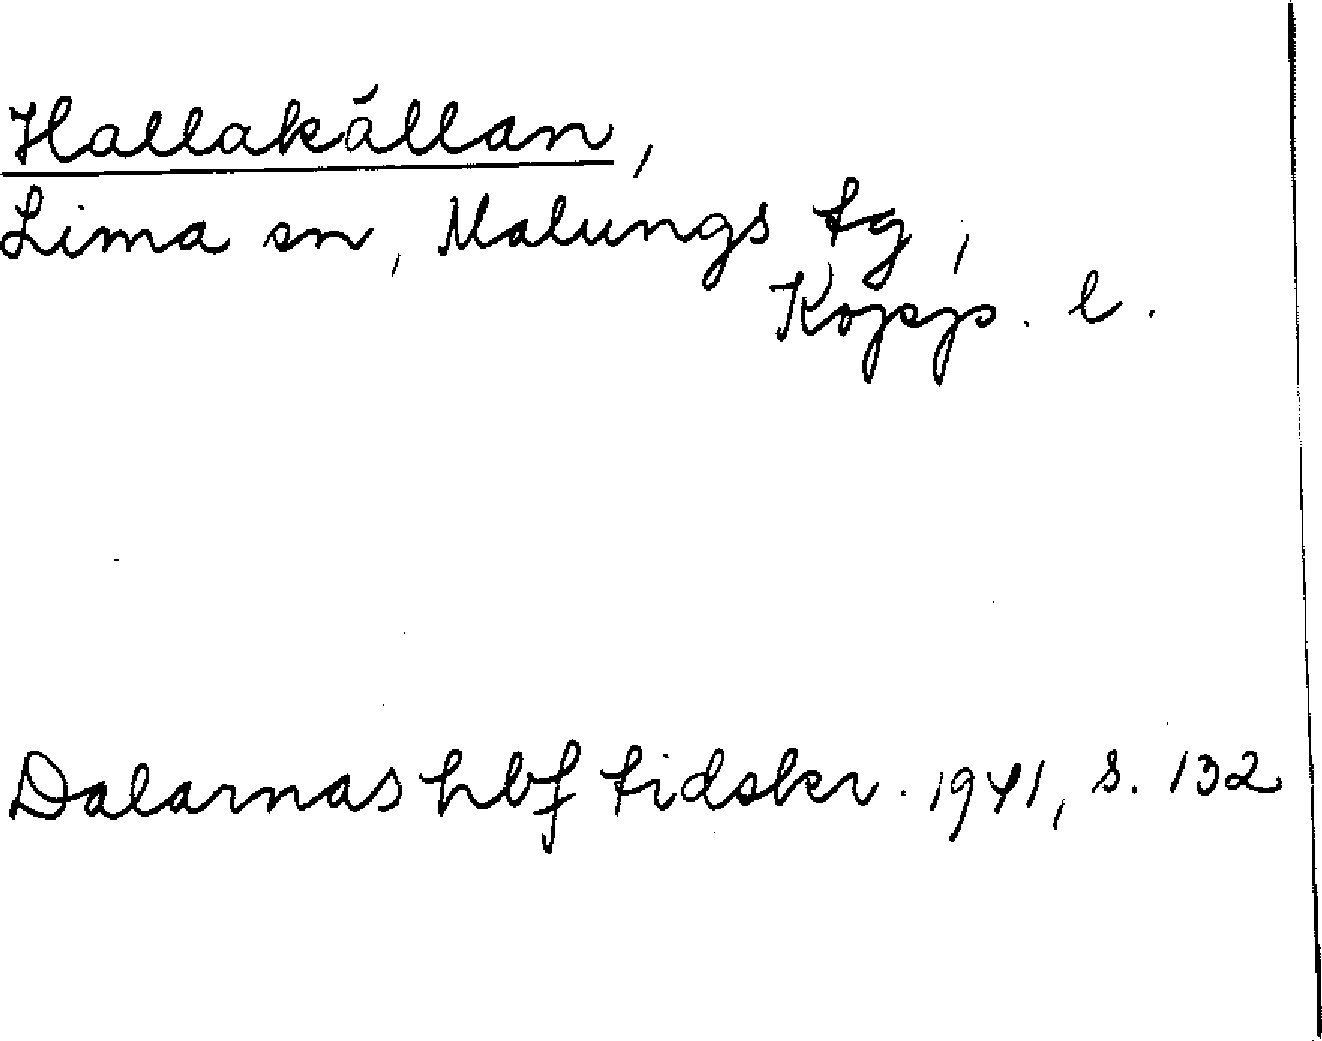 Hallakällan,
Lima sn, Malungs tg,
Kopp. l.
Dalarnas hbf tidskr. 1941, s. 132